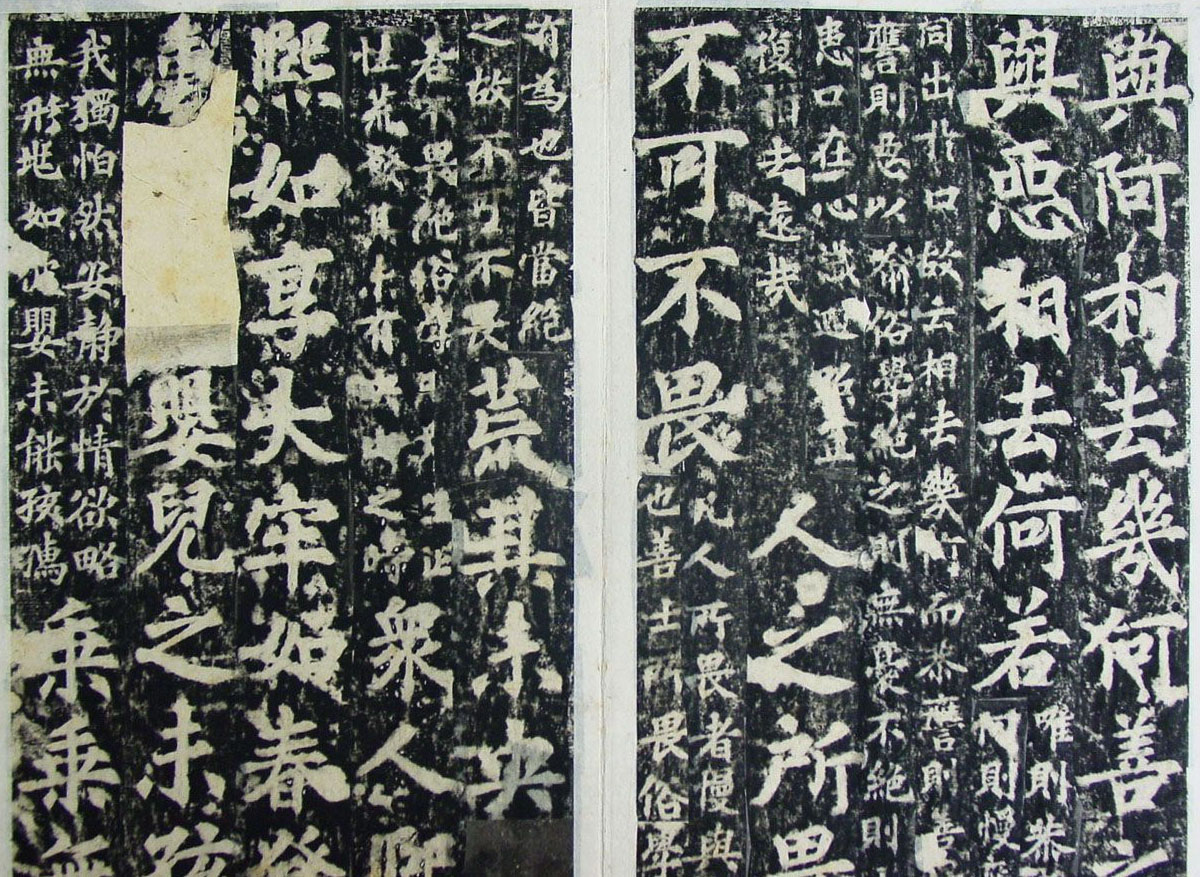 與阿相去幾何善之
與惡相去何若
唯則恭
阿則慢
同出於口故云相去幾何而不應則善
應則惡以喻俗學絕之則無憂不絕則
患口在心識迴照豈
復可去遠哉
人之所畏
不可不畏
凡人所畏者慢與
也善士所畏俗學
有為也皆當絕
之故不可不畏
荒其未央
若不畏絕俗學生正
性荒散其未有之際
眾人熙
熙如享太牢如春登
臺嬰兒之未孩
我獨怕然安靜於情欲略
無形兆如彼嬰未能孩孺
乘乘無